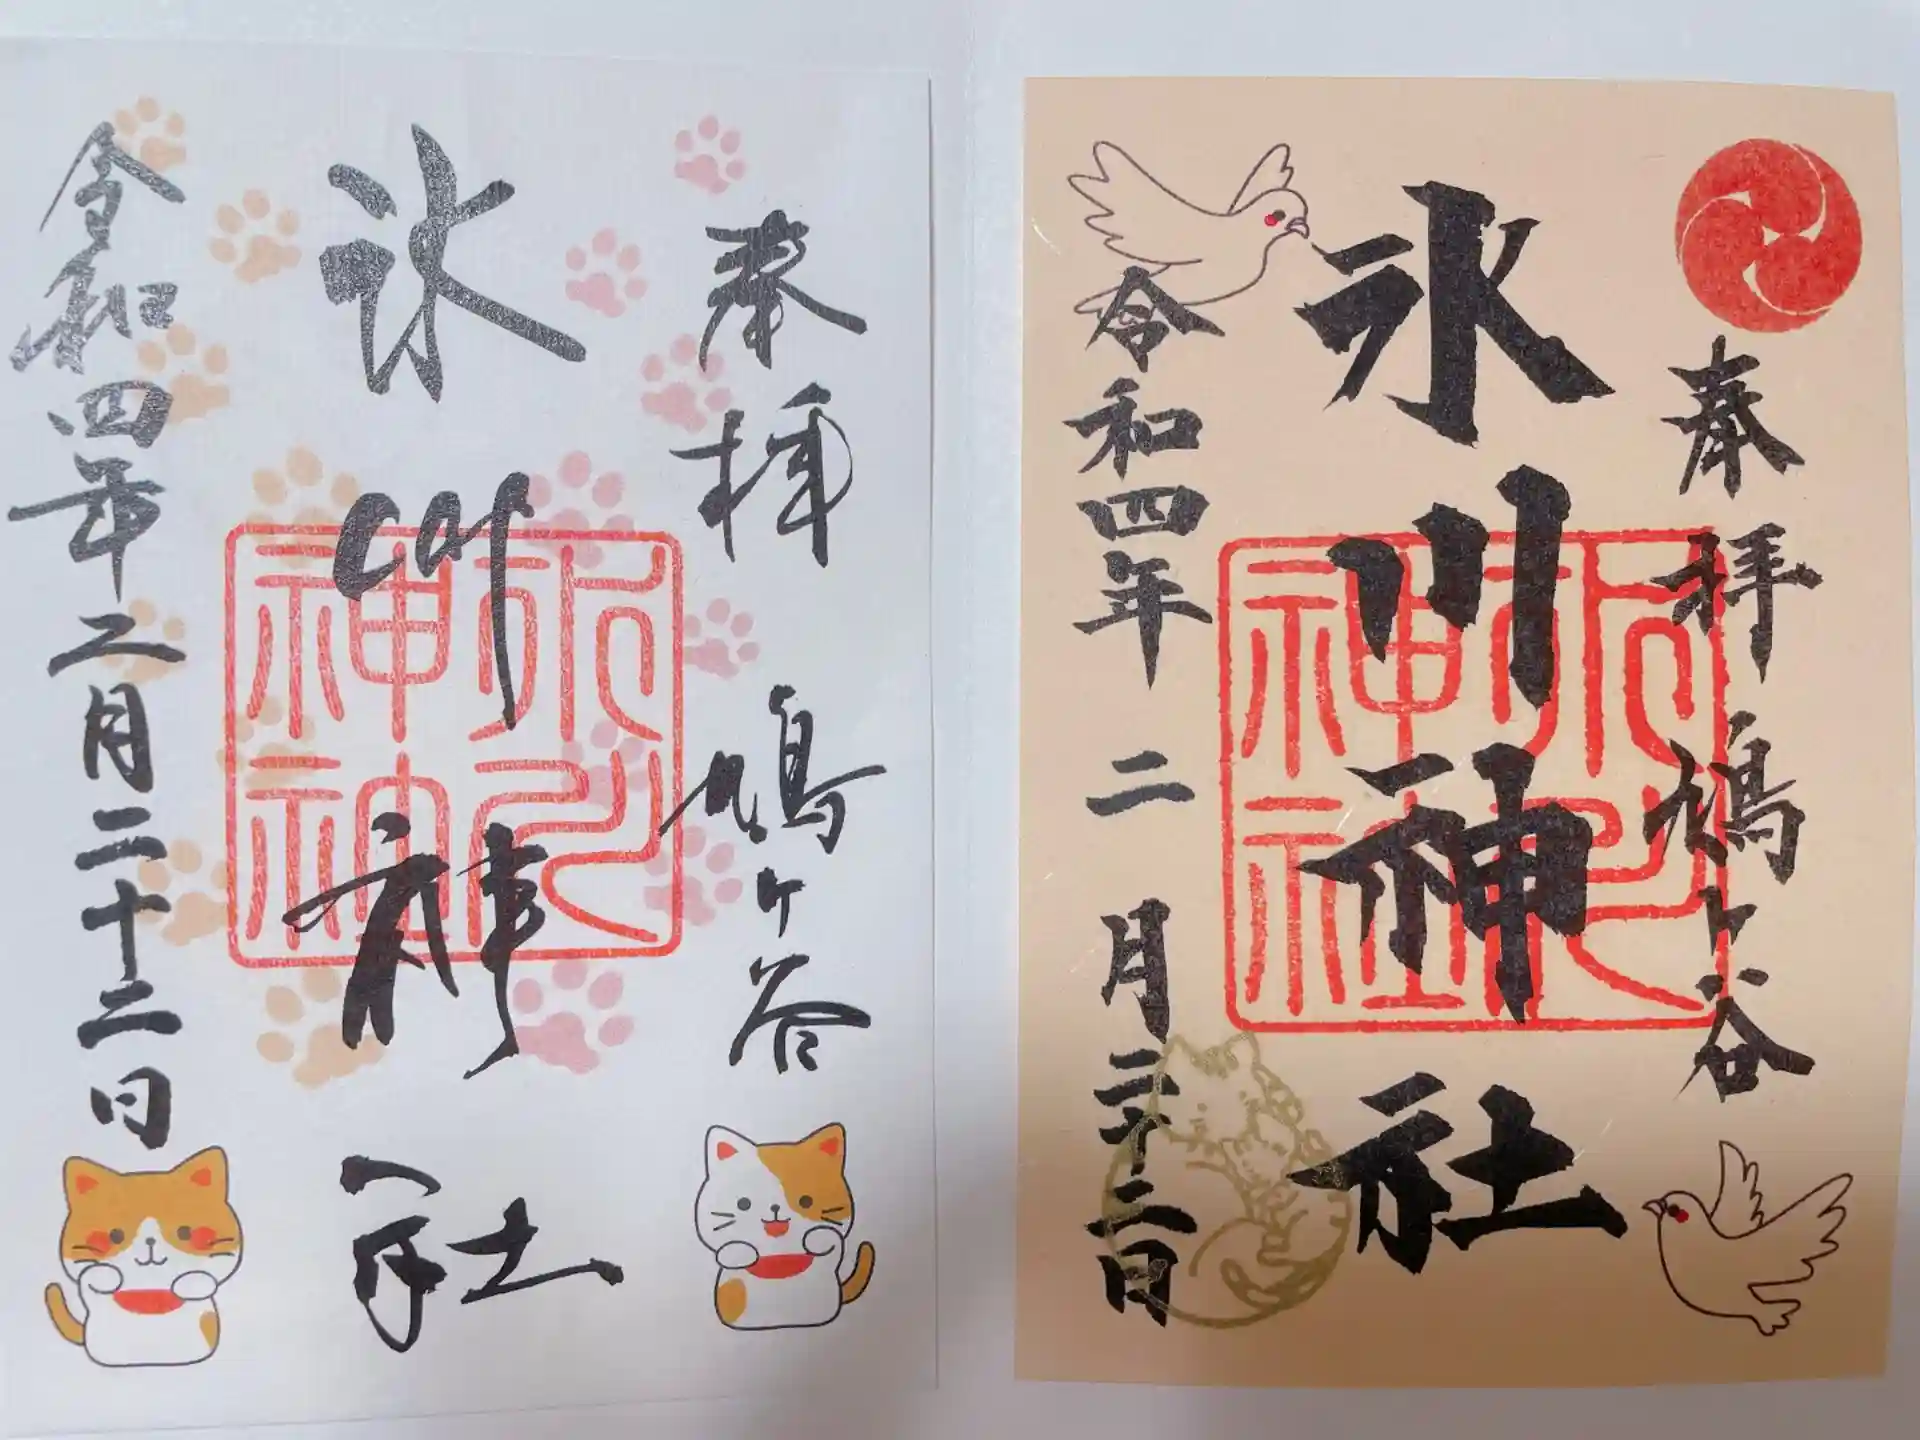 奉拝
鳩ヶ谷
氷川神社
令和四年二月二十二日
氷川神社
奉拝
鳩ヶ谷
氷川神社
令和四年二月二十二日
氷川神社